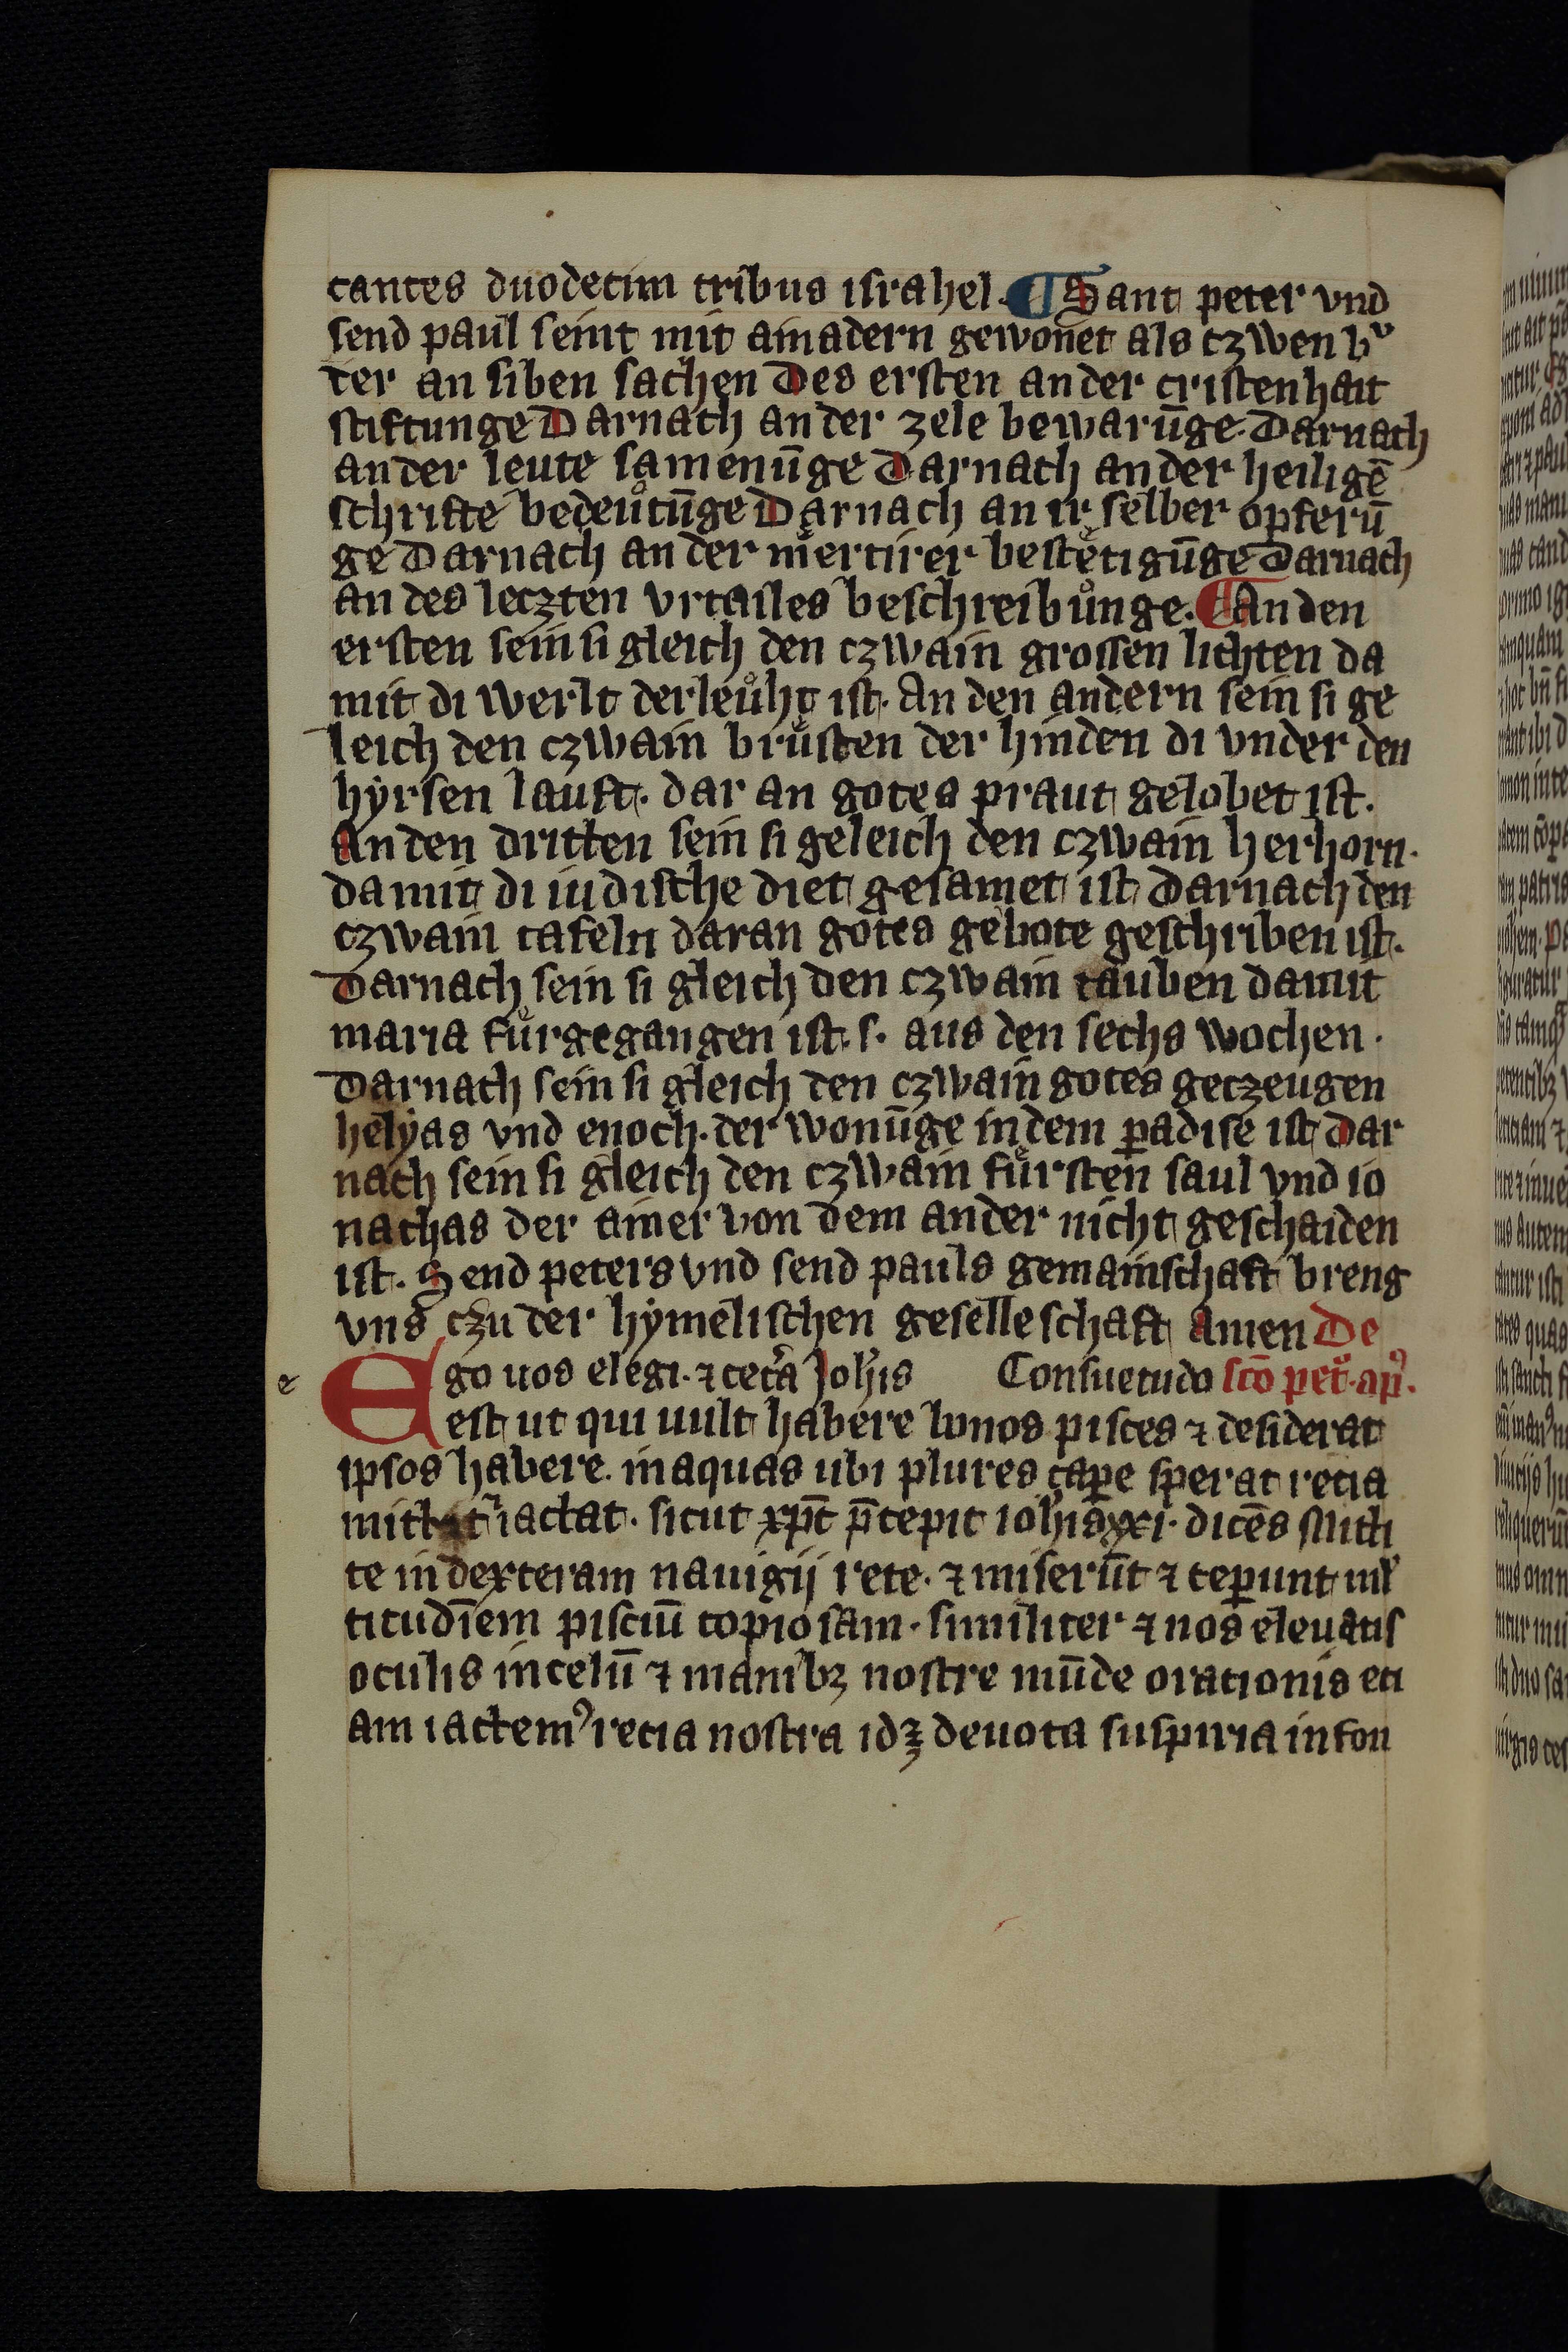 cantes duodecim tribus israhel. ¶ Sant peter vnd
send paul seint mit ainadern gewonet als czwen bͮ
der an siben sachen Des ersten an der cristenhait
stiftunge Darnach an der zele bewarūge. Darnach
an der leute samenūge Darnach an der heiligē
schrifte bedeůtūge Darnach an ir selber opferū
ge Darnach an der mͤertirer bestͤetigūge Darnach
an des leczten vrtailes beschreibůnge. ¶ An den
ersten sein si gleich den czwain grossen lichten da
mit di werlt derleůht ist. An den andern sein si ge
leich den czwain bruͤsten der hinden di vnder den
hyrsen lauft. dar an gotes praut gelobet ist.
An den dritten sein si geleich den czwain herhorn.
damit di iudische diet gesamet ist Darnach den
czwain tafeln daran gotes gebote geschriben ist.
Darnach sein si gleich den czwain tauben damit
maria fuͤrgegangen ist. s. aus den sechs wochen.
Darnach sein si gleich den czwain gotes geczeugen
helyas vnd enoch. der wonūge in dem ꝑadise ist Dar
nach sein si gleich den czwain fuͤrsten saul vnd io
nathas der ainer von dem ander nicht geschaiden
ist. Send peters vnd send pauls gemainschaft breng
vns czu der hymelischen geselleschaft Amen De
e Ego uos elegi. ⁊ cetᷓa Joh̄is Consuetudo sc̄o pet͛. apᷣ.
est ut qui uult habere bonos pisces ⁊ desiderat
ipsos habere. in aquas ubi plures caꝑe sperat recia
mittit iactat. sicut xp̄c p̄cepit ioh̄is xxi. dicēs Mitti
te in dexteram nauigij rete. ⁊ miserūt ⁊ ceꝑunt ml̓
titudīem pisciū copiosam. similiter ⁊ nos eleuatis
oculis in celū ⁊ manibꝫ nostre mūde orationis eti
am iactemꝰ recia nostra idꝫ deuota suspiria in fon